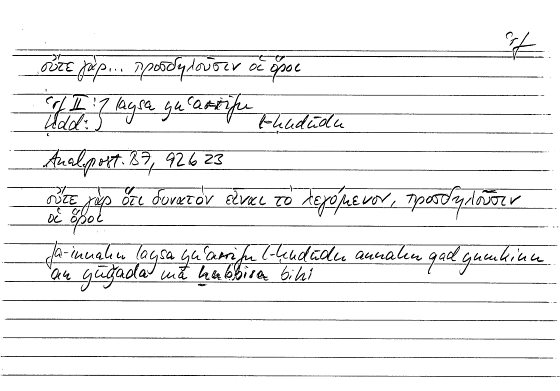 ʿrf
οὔτε γὰρ... προσδηλοῦσιν οἱ ὅροι
ʿrf II: } laysa yuʿarrifu
ḥdd: } l-ḥudūdu
Anal. post. B7, 92b23
οὔτε γὰρ ὅτι δυνατὸν εἶναι τὸ λεγόμενον, προσδηλοῦσιν
οἱ ὅροι
fa-innahu laysa yuʿarrifu l-ḥudūdu annahu qad yumkinu
an yūǧada mā ḫabbira bihi